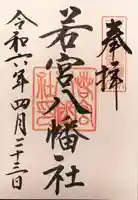 奉拝
若宮八幡社
令和六年四月二十三日